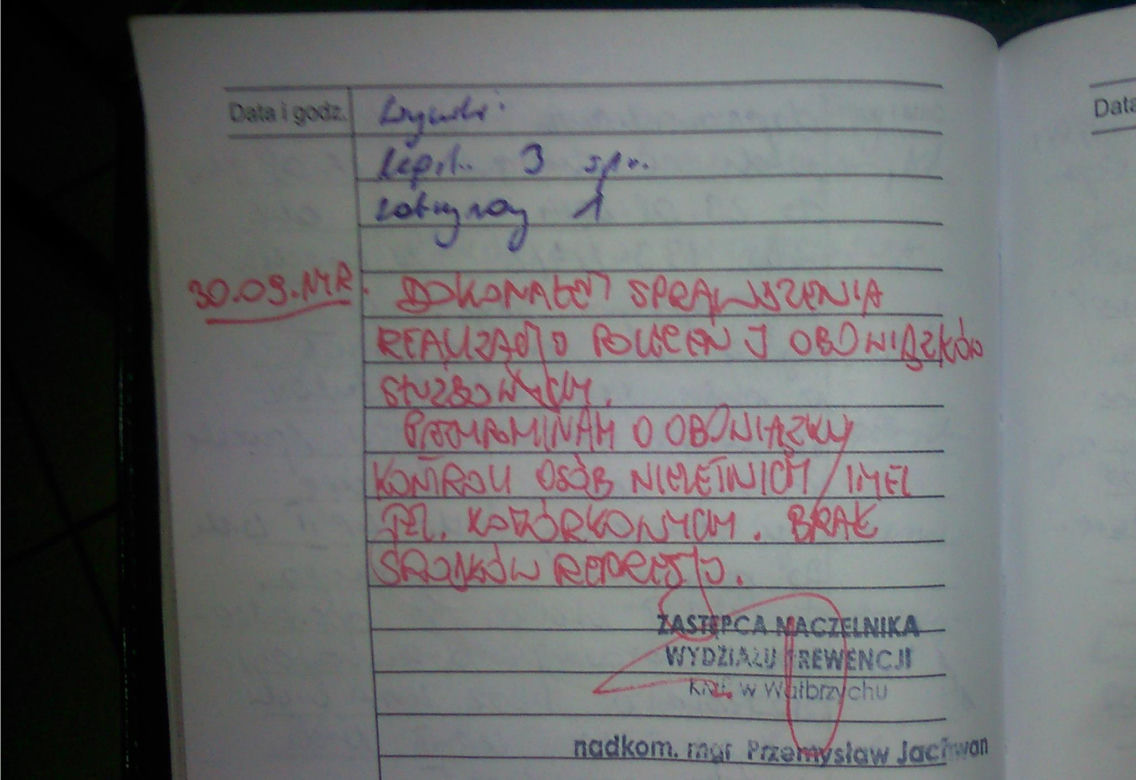 Data i godz. Wyniki:
legit. 3 spr.
zatrzymany 1
30.09.14R. DOKONAŁEM SPRAWDZENIA
REALIZACJI POLECEŃ I OBOWIĄZKÓW
SŁUŻBOWYCH.
PRZYPOMINAM O OBOWIĄZKU
KONTROLI OSÓB NIELETNICH / IMEI
TEL. KOMÓRKOWYCH. BRAK
ŚRODKÓW REPRESJI.
ZASTĘPCA NACZELNIKA
WYDZIAŁU PREWENCJI
KMP w Wałbrzychu
nadkom. mgr Przemysław
Data